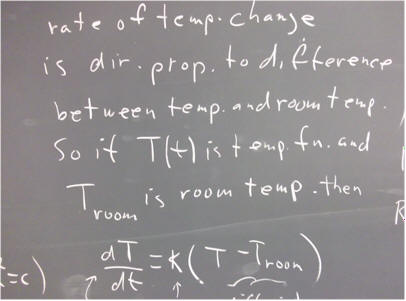 rate of temp. change
is dir. prop. to difference
between temp. and room temp.
So if T(t) is temp. fn. and
T room is room temp. then
dT/dt = K(T - T room)
=c)